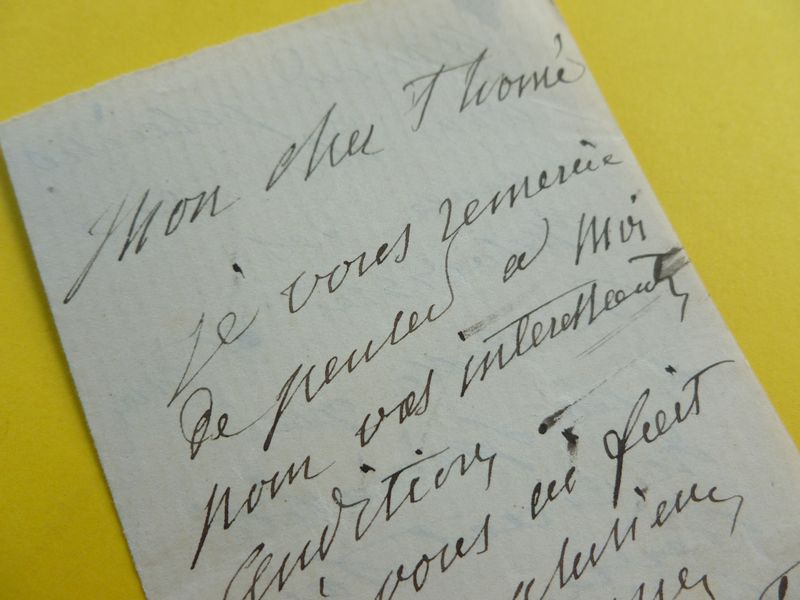 Mon cher Thomé
je vous remercie
de penser à moi
pour vos interessants
auditions
vous ai fait
plusieurs